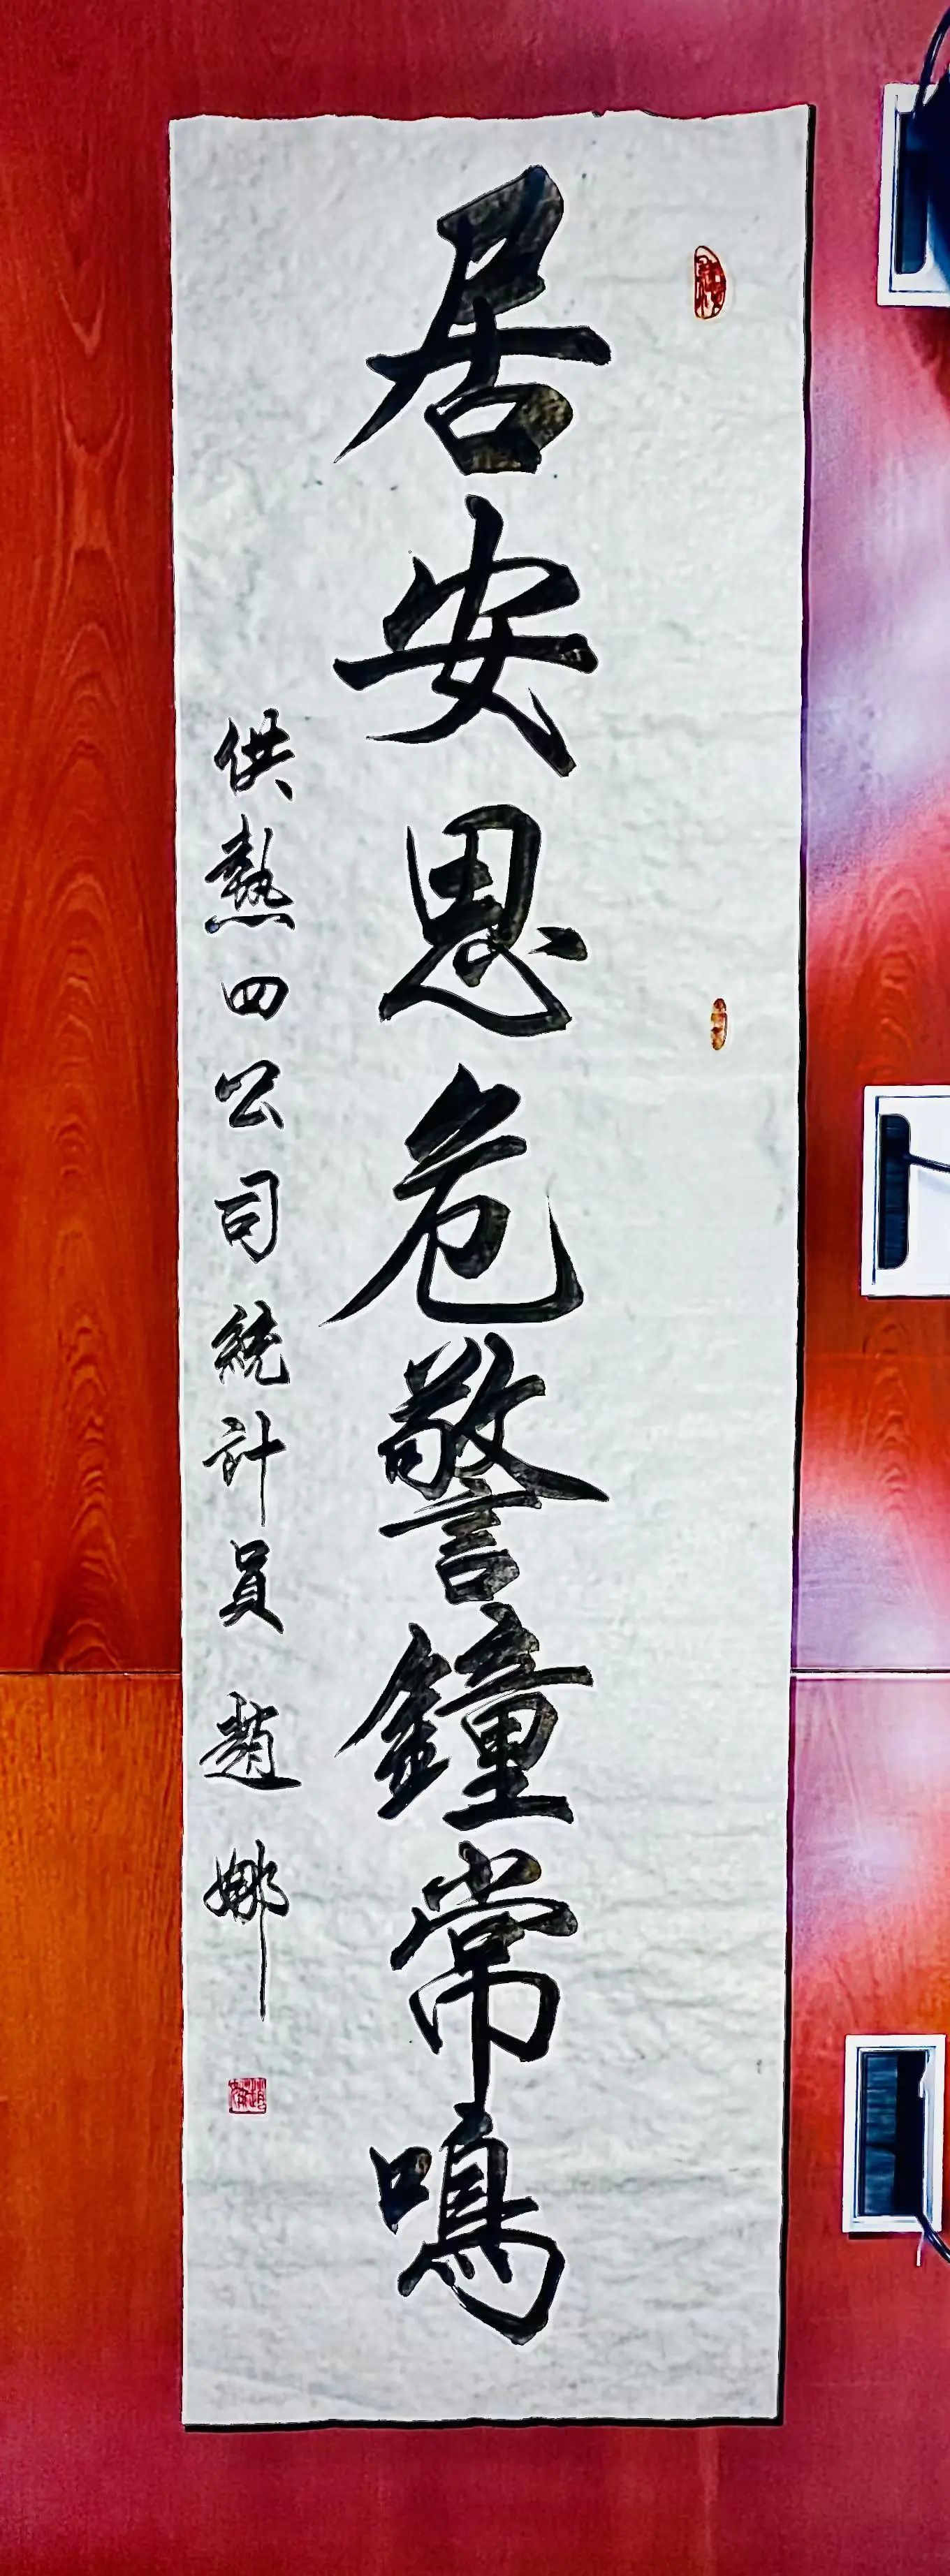 居安思危警鐘常鳴
供熱四公司統計員 趙娜